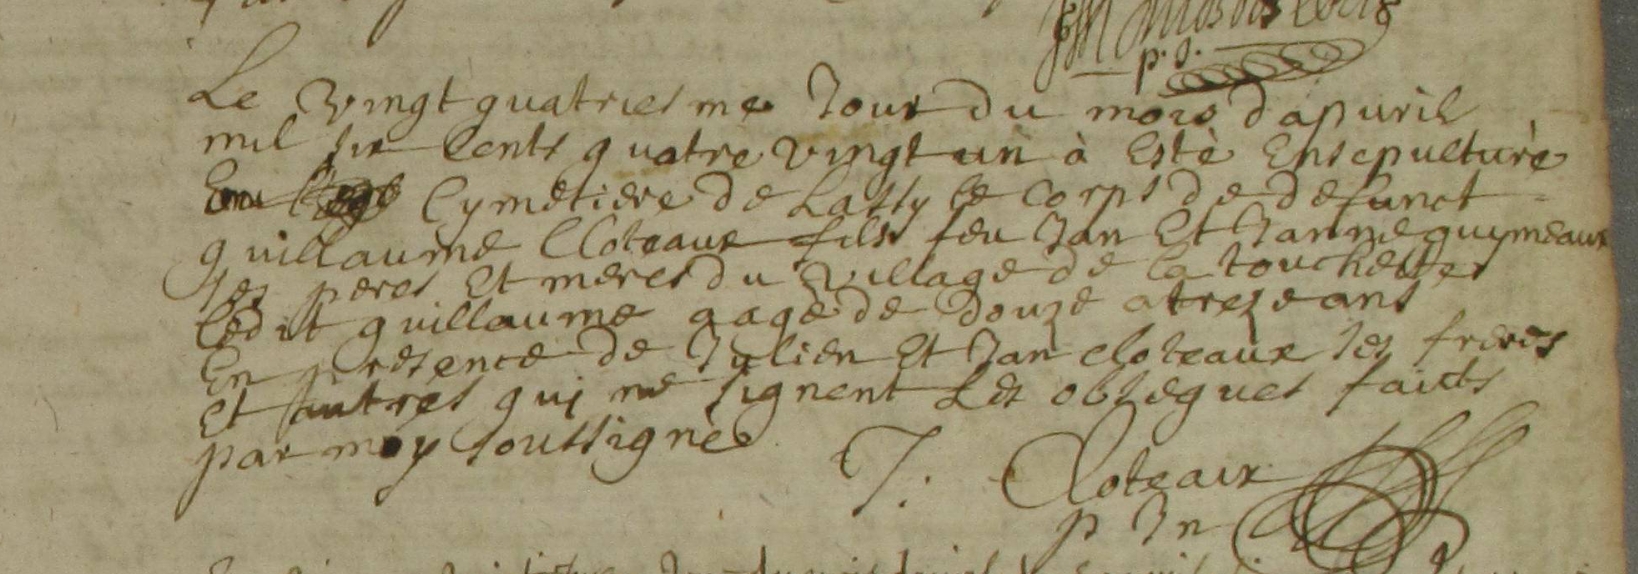 p. s.
Le vingt quatriesme Jour du mois d apuril
mil six cents quatre vingt un à Esté Ensepulturé
En Cymetiere de Lassy le corps de defunct
guillaume Cloteaux fils feu Jan Et Janne guymeaux
ses peres Et meres du village de la touche
ledit guillaume aagé de douze a treze ans
En presence de Julien Et Jan cloteaux ses freres
et autres qui ne signent Les obseques faicts
par moy soussigné
J: Cloteaux
p